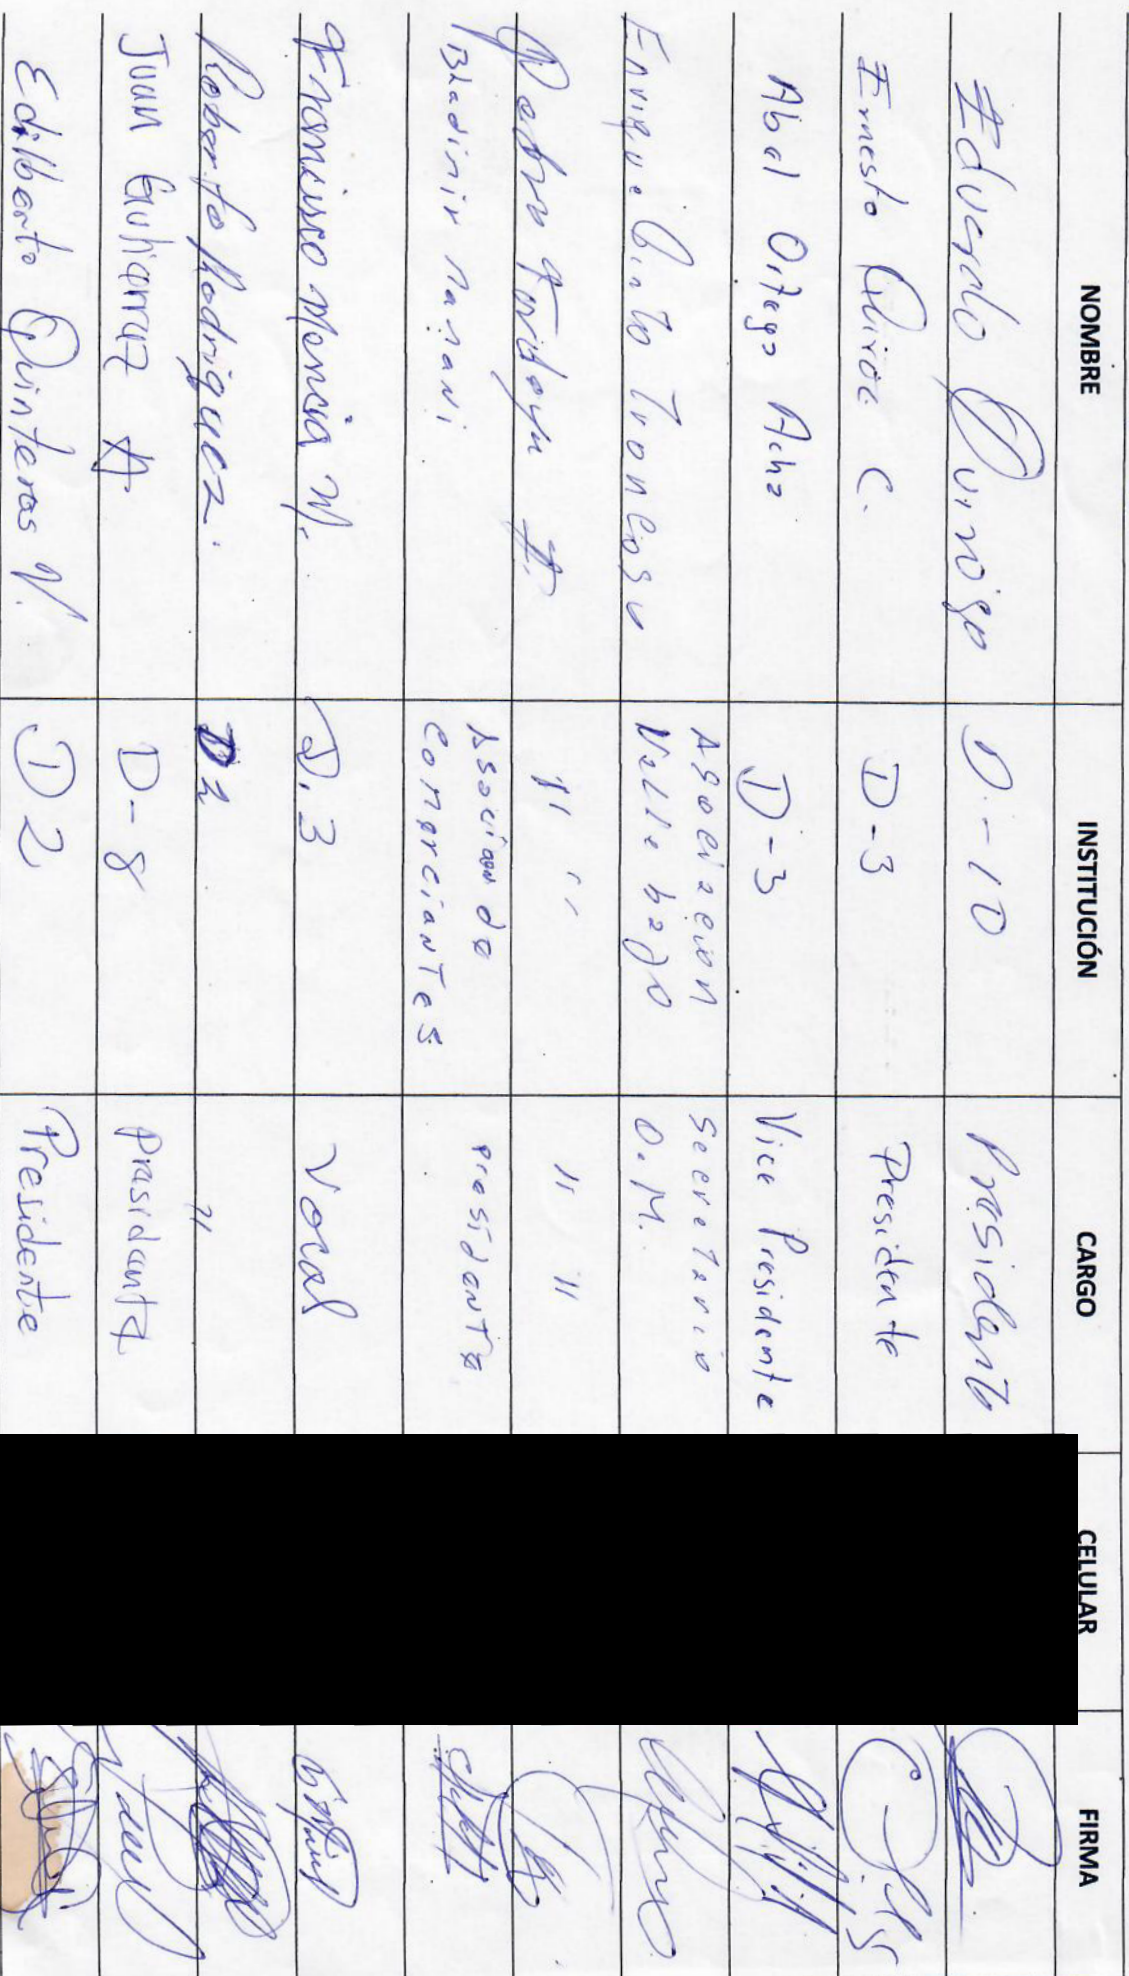 NOMBRE INSTITUCIÓN CARGO CELULAR FIRMA
Eduardo Quiroga D-10 Presidente
Ernesto Quiroz C. D-3 Presidente
Abal Ortega Acha D-3 Vice Presidente
Enrique Troncoso Asociacion Valle bajo Secretario O.M.
Pedro " " " "
Bladimir mamani Asociacion de Comerciantes Presidante
Francisco Mencia M. D.3 Vocal
Roberto Rodriguez. D2 "
Juan Gutierrez A D-8 Presidante
Edilberto Quinteros V. D2 Presidente